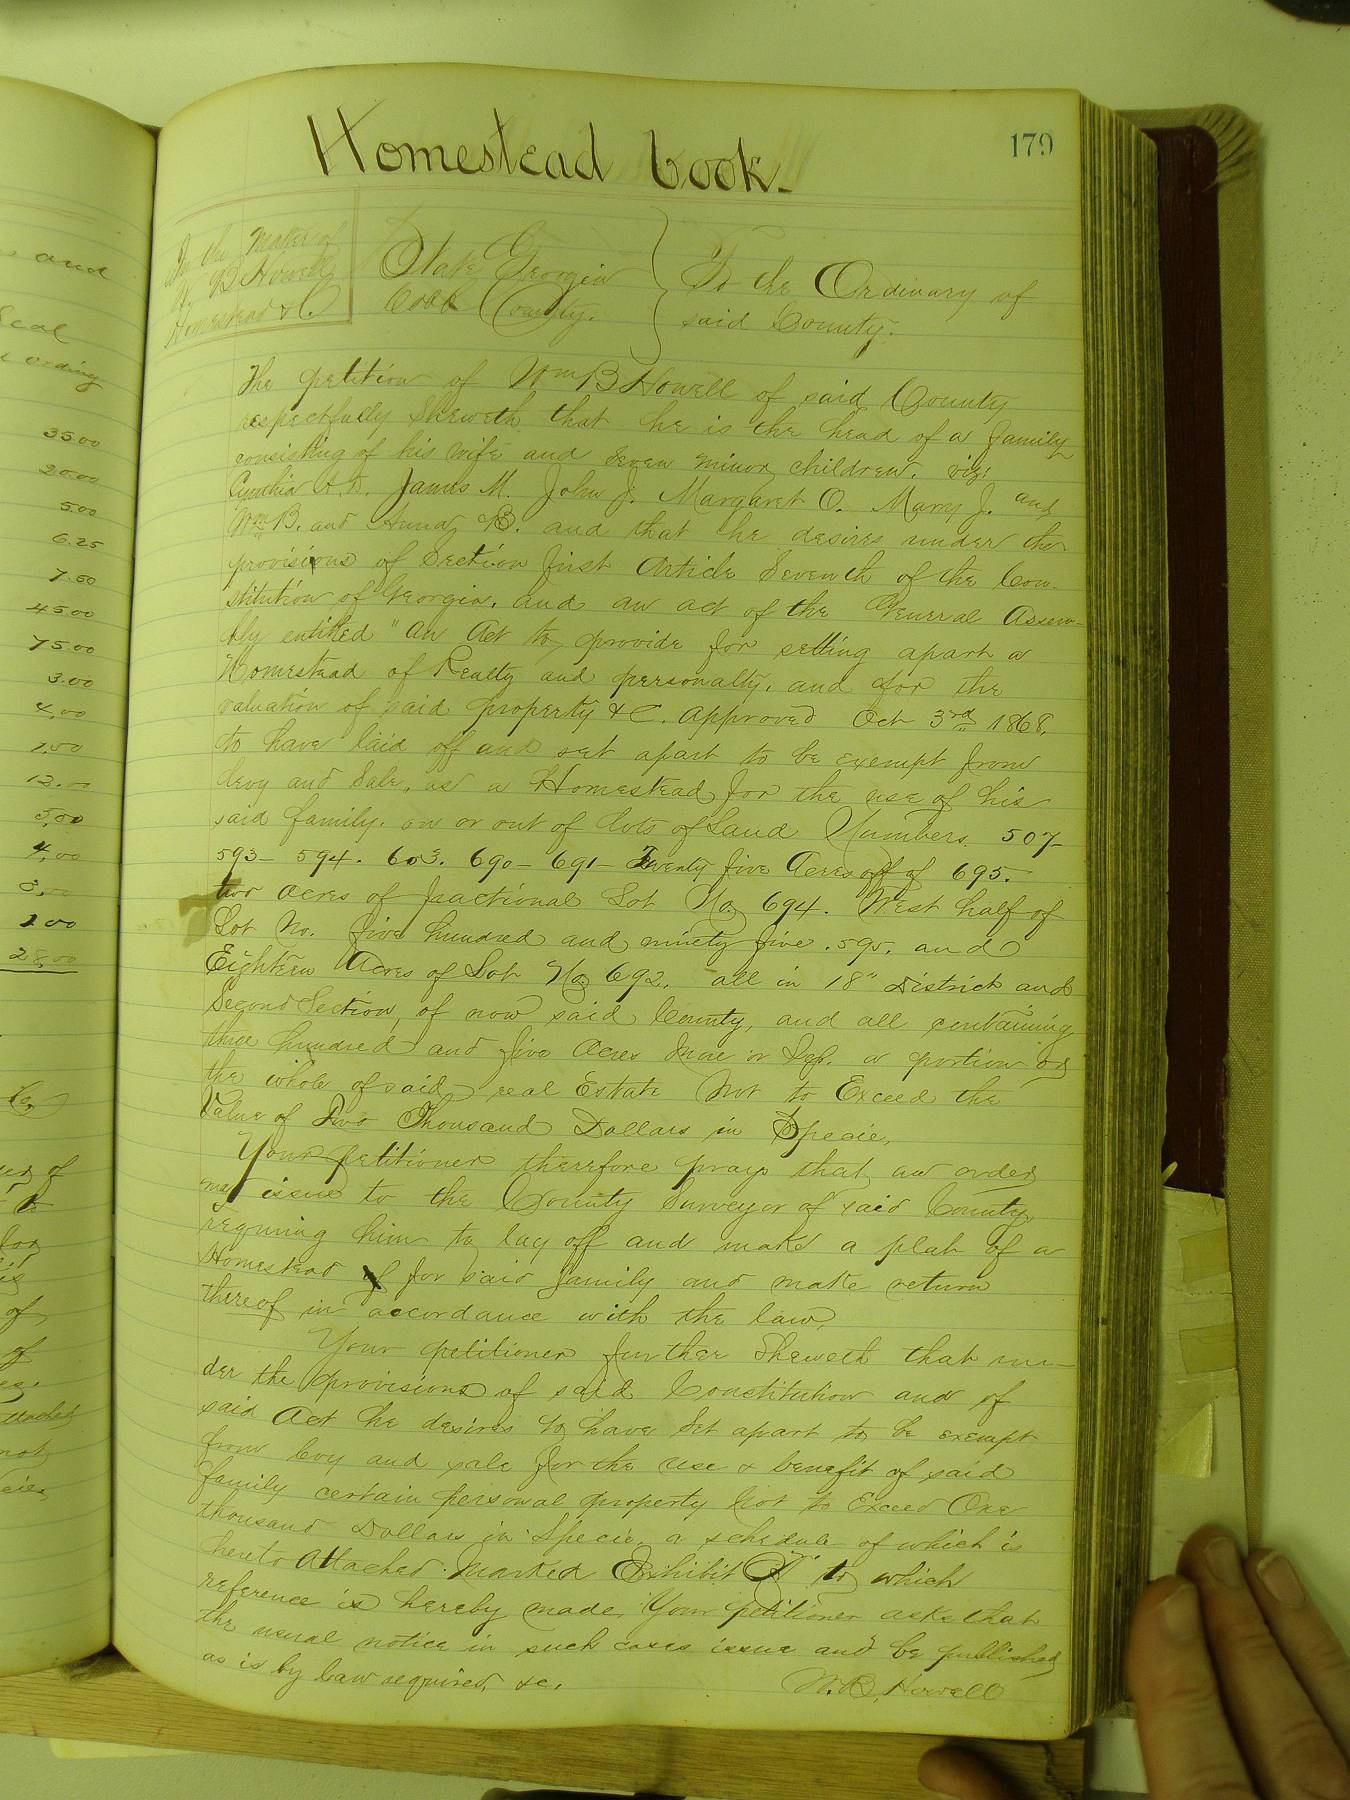 Homestead book.
179
In the Matter of
W. B. Howell
Homestead &C.
State Georgia
Cobb County.
To the Ordinary of
said County.
The petition of Wm B Howell of said County
respectfully Sheweth that he is the head of a family
consisting of his wife and Seven minor children. viz:
Cynthia A. James M. John J. Margaret O. Mary J. and
Wm B. and B. and that he desires under the
provisions of Section first Article Seventh of the Con-
stitution of Georgia. and an act of the General Assem-
bly entitled "An Act to provide for setting apart a
Homestead of Realty and personalty, and for the
valuation of said property &C. Approved Oct 3rd 1868,
to have laid off and set apart to be exempt from
levy and Sale, as a Homestead for the use of his
said family. on or out of Lots of Land Numbers 507-
593- 594. 603. 690- 691- Twenty five Acres off of 695.
two acres of fractional Lot No 694. West half of
Lot No. five hundred and ninety five .595. and
Eighteen Acres of Lot No 692. all in 18" District and
Second Section, of now said County, and all containing
three hundred and five Acres More or Less. a portion or
the whole of said real Estate Not to Exceed the
Value of Two Thousand Dollars in Specie,
Your petitioner therefore prays that an order
may issue to the County Surveyor of said County
requiring him to lay off and make a plat of a
Homestead for said family and make return
thereof in accordance with the law,
Your petitioner further Sheweth that un-
der the provisions of said Constitution and of
said Act he desires to have Set apart to be exempt
from levy and sale for the use & benefit of said
family certain personal property Not to Exceed One
thousand Dollars in Specie, a schedule of which is
hereto Attached Marked Exhibit "A" to which
reference is hereby made, Your petitioner asks that
the usual notice in such cases issue and be published
as is by law required, &c.
W. B. Howell
and
Seal
35.00
20.00
5.00
6.25
7.50
45.00
75.00
3.00
4.00
1.50
12.00
5.00
4.00
1.00
28.00
of
of
of
attached
not